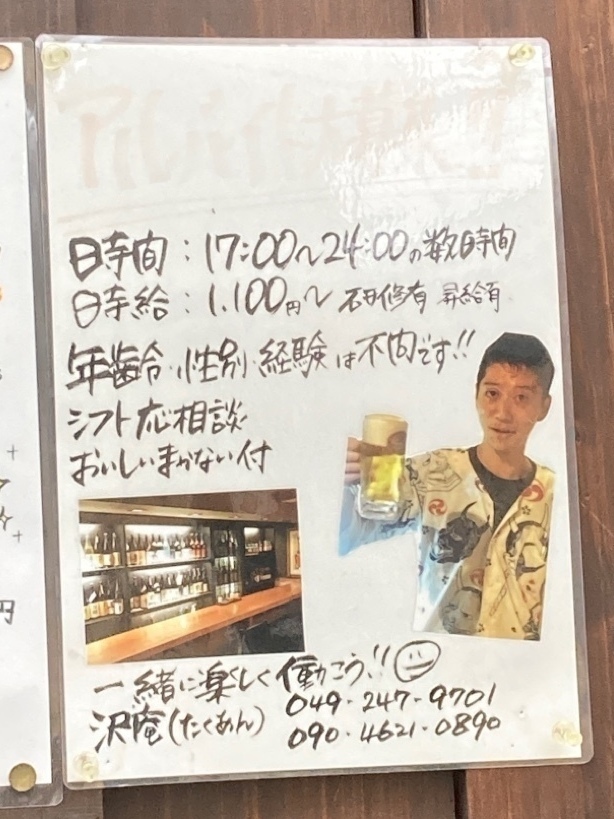 アルバイト募集!!
時間:17:00〜24:00の数時間
時給:1.100円〜 研修有 昇給有
年齢・性別・経験は不問です!!
シフト応相談
おいしいまかない付
一緒に楽しく働こう!!
沢庵(たくあん)
049-247-9701
090-4621-0890
円